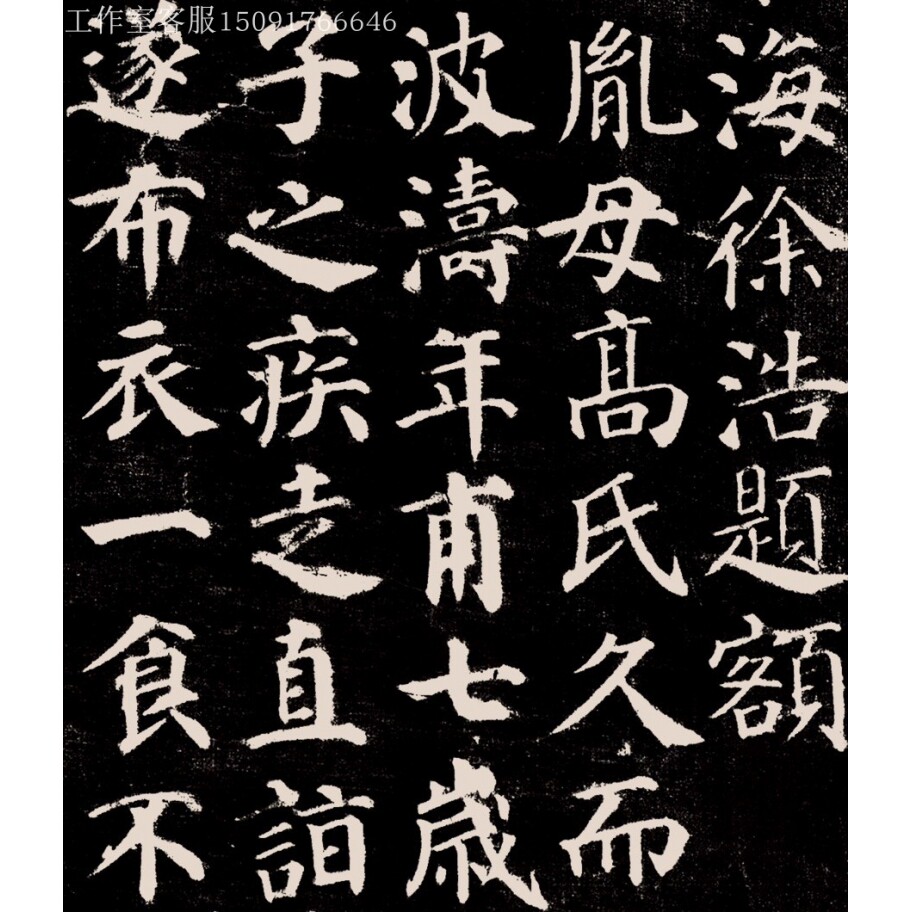 工作室客服15091766646
海徐浩題額
胤母髙氏久而
波濤年甫七歲
子之疾走直詣
遂布衣一食不